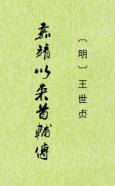 嘉靖以来首辅传
〔明〕王世贞